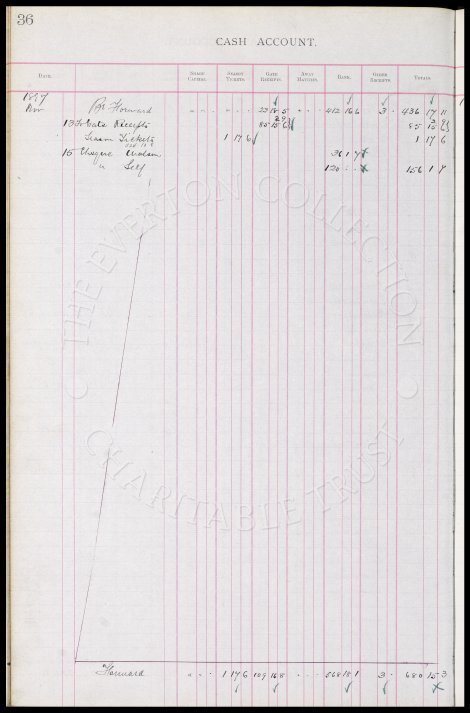 36
CASH ACCOUNT.
DATE. SHARE CAPITAL. SEASON TICKETS. GATE RECEIPTS. AWAY MATCHES. BANK. OTHER RECEIPTS. TOTALS.
1897
Nov Bt. Forward 23 18 5 412 16 6 3 436 17 11
2 9
13 To Gate Receipts 85 15 6 85 15 6
Season Tickets 1 17 6 1 17 6
15 Cheque 36 1 7
" Self 120 156 1 7
THE EVERTON COLLECTION
CHARITABLE TRUST
Forward 1 17 6 109 16 8 568 18 1 3 680 15 3